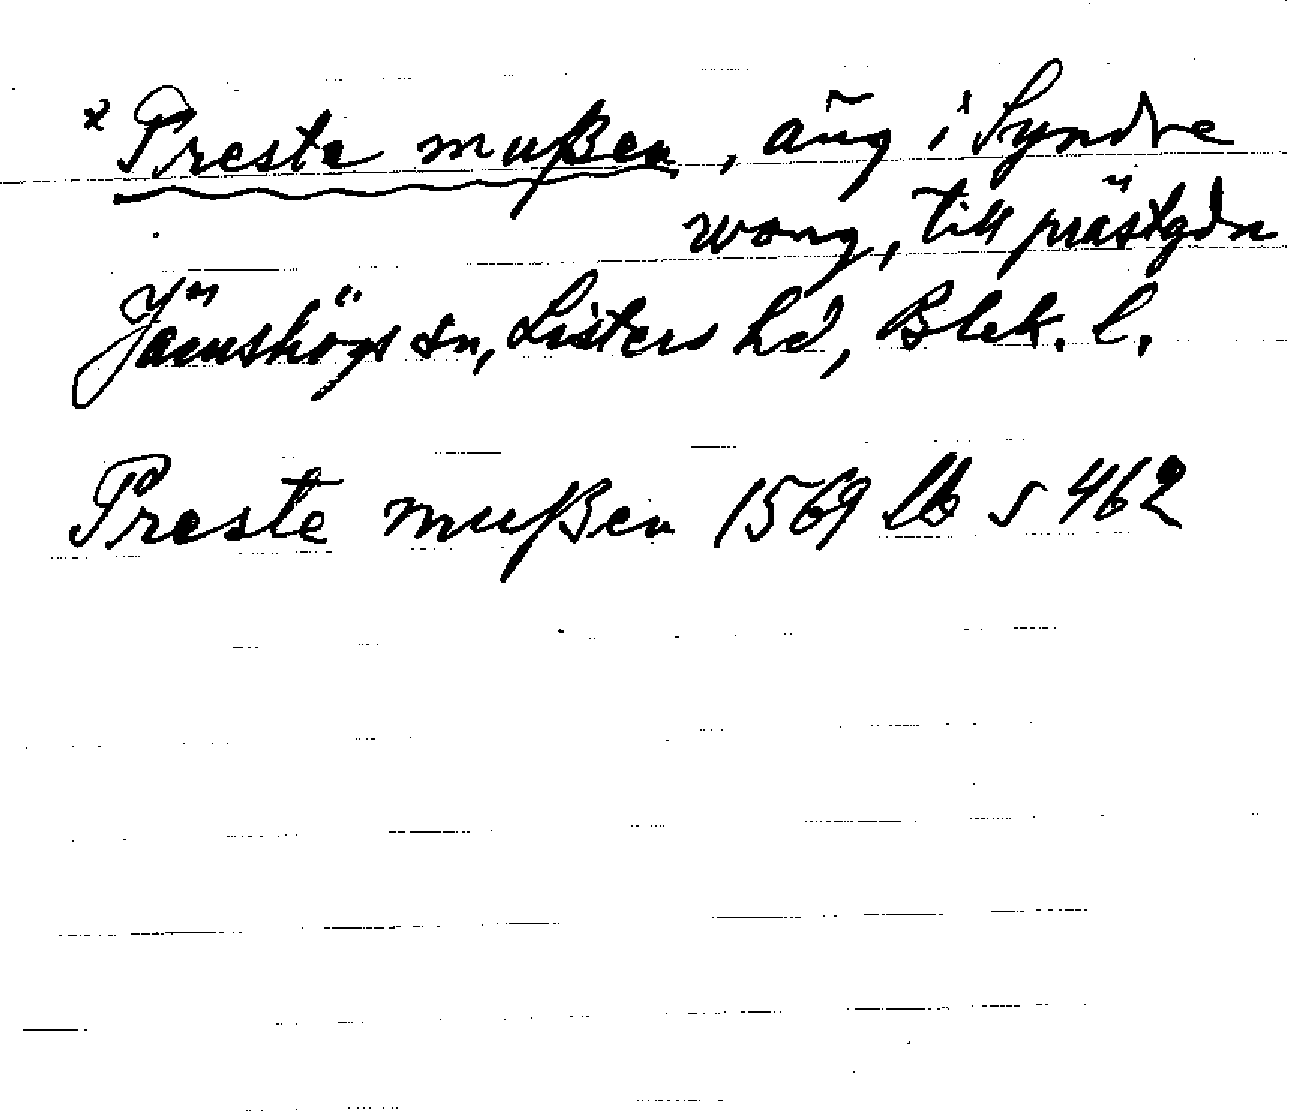 x Preste mußen, äng i Syndre
wong, till prästgdn
Jämshögs sn, Listers hd, Blek. l.
Preste mußen 1569 lb s 462